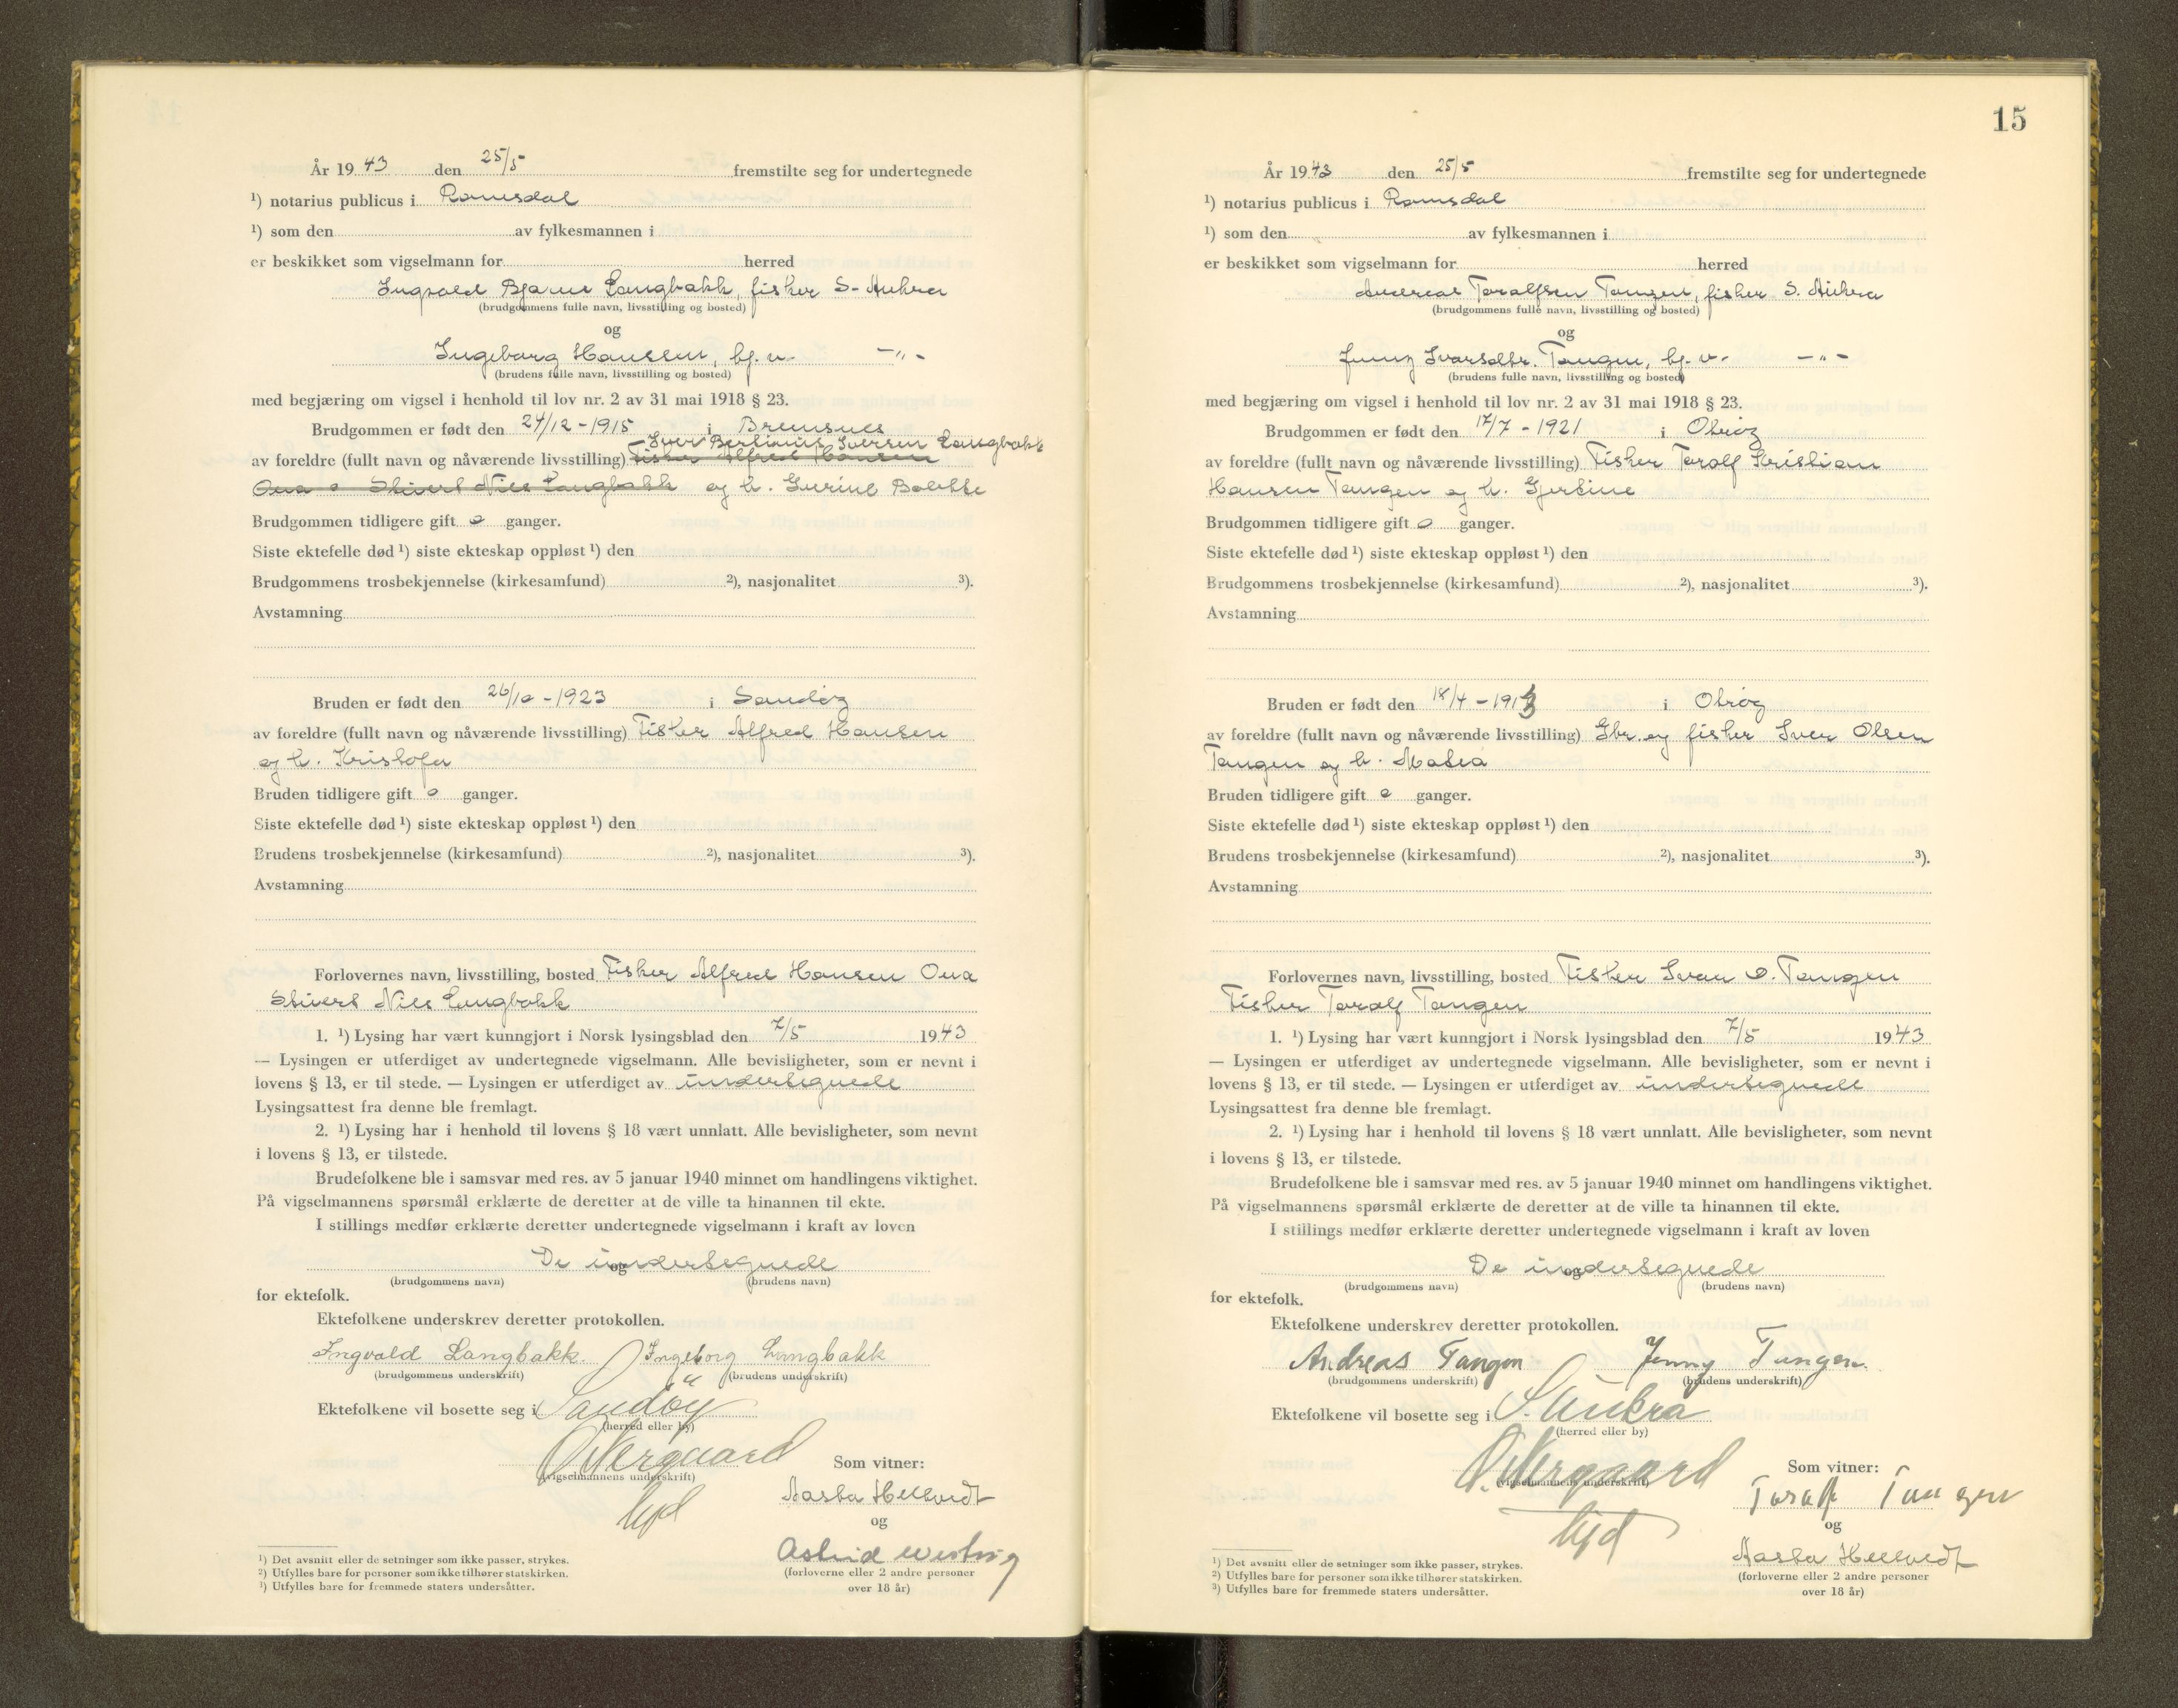 År 1943 den 25/5 fremstilte seg for undertegnede
¹) notarius publicus i Romsdal
¹) som den av fylkesmannen i
er beskikket som vigselmann for herred
Ingvald Bjarne Langbakk, fisker S. Aukra
(brudgommens fulle navn, livsstilling og bosted)
og
Ingeborg Hansen, hj. v. -"-
(brudens fulle navn, livsstilling og bosted)
med begjæring om vigsel i henhold til lov nr. 2 av 31 mai 1918 § 23.
Brudgommen er født den 24/12-1915 i Bremsnes
Iver Berlinius Iversen Langbakk
av foreldre (fullt navn og nåværende livsstilling) Fisker Alfred Hansen
Ona o Sivert Nils Langbakk og h. Gurine Bolette
Brudgommen tidligere gift o ganger.
Siste ektefelle død ¹) siste ekteskap oppløst ¹) den
Brudgommens trosbekjennelse (kirkesamfund) ²), nasjonalitet ³).
Avstamning
Bruden er født den 26/10-1923 i Sandöy
av foreldre (fullt navn og nåværende livsstilling) Fisker Alfred Hansen
og h. Kristofa
Bruden tidligere gift o ganger.
Siste ektefelle død ¹) siste ekteskap oppløst ¹) den
Brudens trosbekjennelse (kirkesamfund) ²), nasjonalitet ³).
Avstamning
Forlovernes navn, livsstilling, bosted Fisker Alfred Hansen Ona
Sivert Nils Langbakk
1. ¹) Lysing har vært kunngjort i Norsk lysingsblad den 7/5 1943
— Lysingen er utferdiget av undertegnede vigselmann. Alle bevisligheter, som er nevnt i
lovens § 13, er til stede. — Lysingen er utferdiget av undertegnede
Lysingsattest fra denne ble fremlagt.
2. ¹) Lysing har i henhold til lovens § 18 vært unnlatt. Alle bevisligheter, som nevnt
i lovens § 13, er tilstede.
Brudefolkene ble i samsvar med res. av 5 januar 1940 minnet om handlingens viktighet.
På vigselmannens spørsmål erklærte de deretter at de ville ta hinannen til ekte.
I stillings medfør erklærte deretter undertegnede vigselmann i kraft av loven
De undertegnede
og
(brudgommens navn) (brudens navn)
for ektefolk.
Ektefolkene underskrev deretter protokollen.
Ingvald Langbakk. Ingeborg Langbakk
(brudgommens underskrift) (brudens underskrift)
Ektefolkene vil bosette seg i Sandöy
(herred eller by)
(vigselmannens underskrift)
Som vitner:
Aasta Hellvedt
og
Astrid
(forloverne eller 2 andre personer
over 18 år)
¹) Det avsnitt eller de setninger som ikke passer, strykes.
²) Utfylles bare for personer som ikke tilhører statskirken.
³) Utfylles bare for fremmede staters undersåtter.
15
År 1943 den 25/5 fremstilte seg for undertegnede
¹) notarius publicus i Romsdal
¹) som den av fylkesmannen i
er beskikket som vigselmann for herred
Andreas Toralfsen Tangen, fisker S. Aukra
(brudgommens fulle navn, livsstilling og bosted)
og
Jenny Ivarsdtr. Tangen, hj. v. -"-
(brudens fulle navn, livsstilling og bosted)
med begjæring om vigsel i henhold til lov nr. 2 av 31 mai 1918 § 23.
Brudgommen er født den 17/7-1921 i Otröy
av foreldre (fullt navn og nåværende livsstilling) Fisker Toralf Kristian
Hansen Tangen og h. Gjertine
Brudgommen tidligere gift o ganger.
Siste ektefelle død ¹) siste ekteskap oppløst ¹) den
Brudgommens trosbekjennelse (kirkesamfund) ²), nasjonalitet ³).
Avstamning
Bruden er født den 18/4-1913 i Otröy
av foreldre (fullt navn og nåværende livsstilling) Gbr. og fisker Iver Olsen
Tangen og h. Matea
Bruden tidligere gift o ganger.
Siste ektefelle død ¹) siste ekteskap oppløst ¹) den
Brudens trosbekjennelse (kirkesamfund) ²), nasjonalitet ³).
Avstamning
Forlovernes navn, livsstilling, bosted Fisker Ivar O. Tangen
Fisker Toralf Tangen
1. ¹) Lysing har vært kunngjort i Norsk lysingsblad den 7/5 1943
— Lysingen er utferdiget av undertegnede vigselmann. Alle bevisligheter, som er nevnt i
lovens § 13, er til stede. — Lysingen er utferdiget av undertegnede
Lysingsattest fra denne ble fremlagt.
2. ¹) Lysing har i henhold til lovens § 18 vært unnlatt. Alle bevisligheter, som nevnt
i lovens § 13, er tilstede.
Brudefolkene ble i samsvar med res. av 5 januar 1940 minnet om handlingens viktighet.
På vigselmannens spørsmål erklærte de deretter at de ville ta hinannen til ekte.
I stillings medfør erklærte deretter undertegnede vigselmann i kraft av loven
De undertegnede
og
(brudgommens navn) (brudens navn)
for ektefolk.
Ektefolkene underskrev deretter protokollen.
Andreas Tangen Jenny Tangen.
(brudgommens underskrift) (brudens underskrift)
Ektefolkene vil bosette seg i S. Aukra
(herred eller by)
(vigselmannens underskrift)
Som vitner:
Toralf Tangen
og
Aasta Hellvedt
(forloverne eller 2 andre personer
over 18 år)
¹) Det avsnitt eller de setninger som ikke passer, strykes.
²) Utfylles bare for personer som ikke tilhører statskirken.
³) Utfylles bare for fremmede staters undersåtter.